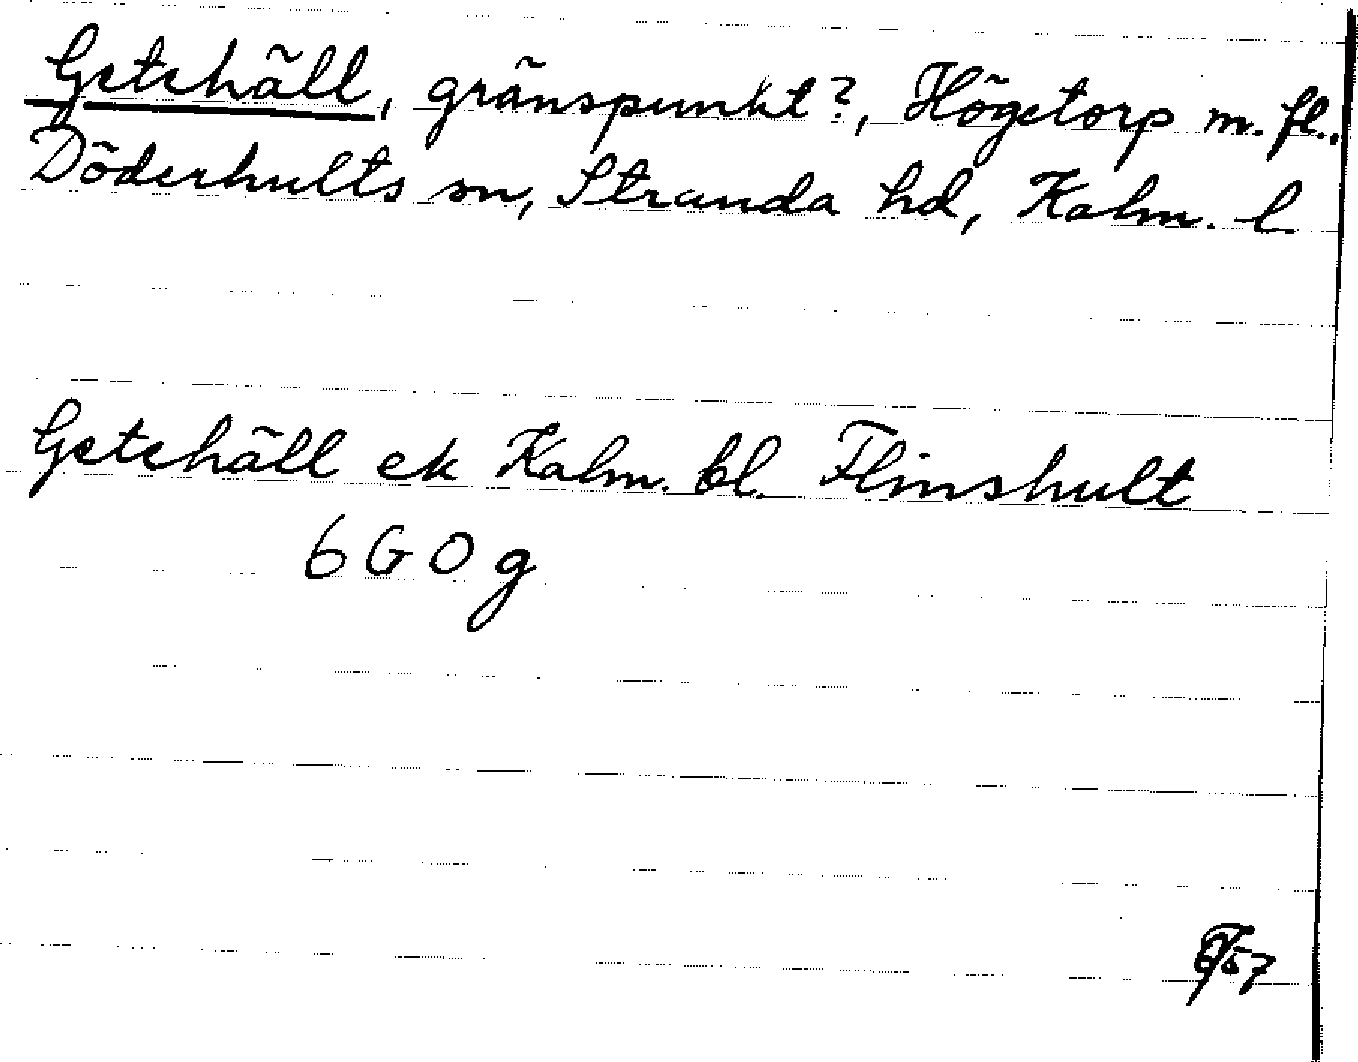 Getehäll, gränspunkt?, Högetorp m. fl.,
Döderhults sn, Stranda hd, Kalm. l.
Getehäll ek Kalm. bl. Flinshult
6 G O g